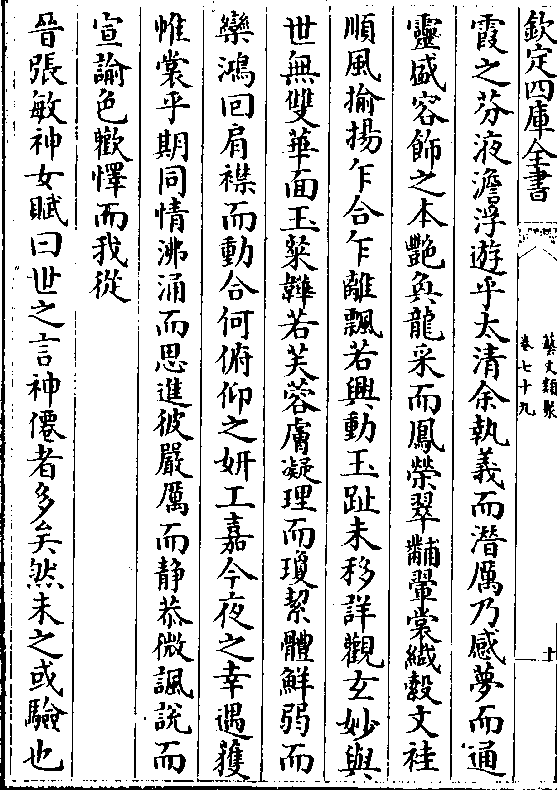 欽定四庫全書
藝文類聚
卷七十九
十
霞之芬液澹浮遊乎太清余執義而潛厲乃感夢而通
靈盛容飾之本艷奐龍采而鳳榮翠黼翬裳纖縠文袿
順風揄揚乍合乍離飄若興動玉趾未移詳觀玄妙與
世無雙華面玉粲韡若芙蓉膚凝理而瓊絜體鮮弱而
欒鴻回肩襟而動合何俯仰之妍工嘉今夜之幸遇獲
帷裳乎期同情沸涌而思進彼嚴厲而静恭微諷說而
宣諭色歡懌而我從
晉張敏神女賦曰世之言神僊者多矣然未之或驗也